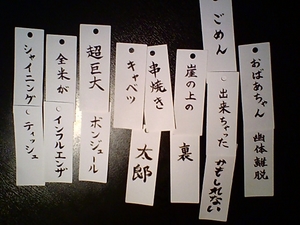 おばあちゃん
幽体離脱
ごめん
出来ちゃった
かもしれない
崖の上の
裏
串焼き
キャベツ
太郎
超巨大
ボンジュール
全米が
インフルエンザ
シャイニング
ティッシュ